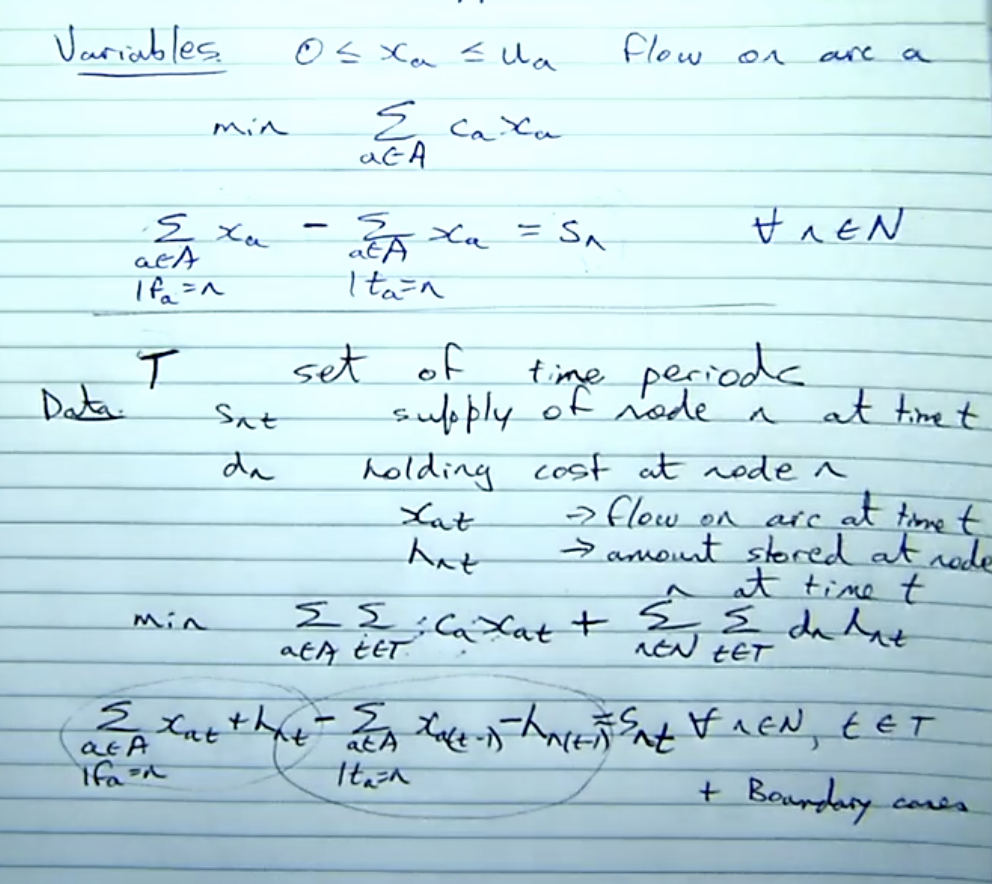 Variables. 0 ≤ xₐ ≤ uₐ flow on arc a
min ∑ cₐxₐ
a∈A
∑ xₐ - ∑ xₐ = sₙ ∀ n∈N
a∈A a∈A
|fₐ=n |tₐ=n
T set of time periods
Data. sₙₜ supply of node n at time t
dₙ holding cost at node n
xₐₜ → flow on arc at time t
hₙₜ → amount stored at node
n at time t
min ∑ ∑ cₐxₐₜ + ∑ ∑ dₙhₙₜ
a∈A t∈T n∈N t∈T
∑ xₐₜ + hₙₜ - ∑ xₐ₍ₜ₋₁₎ - hₙ₍ₜ₋₁₎ = sₙₜ ∀ n∈N, t∈T
a∈A a∈A
|fₐ=n |tₐ=n
+ Boundary cases